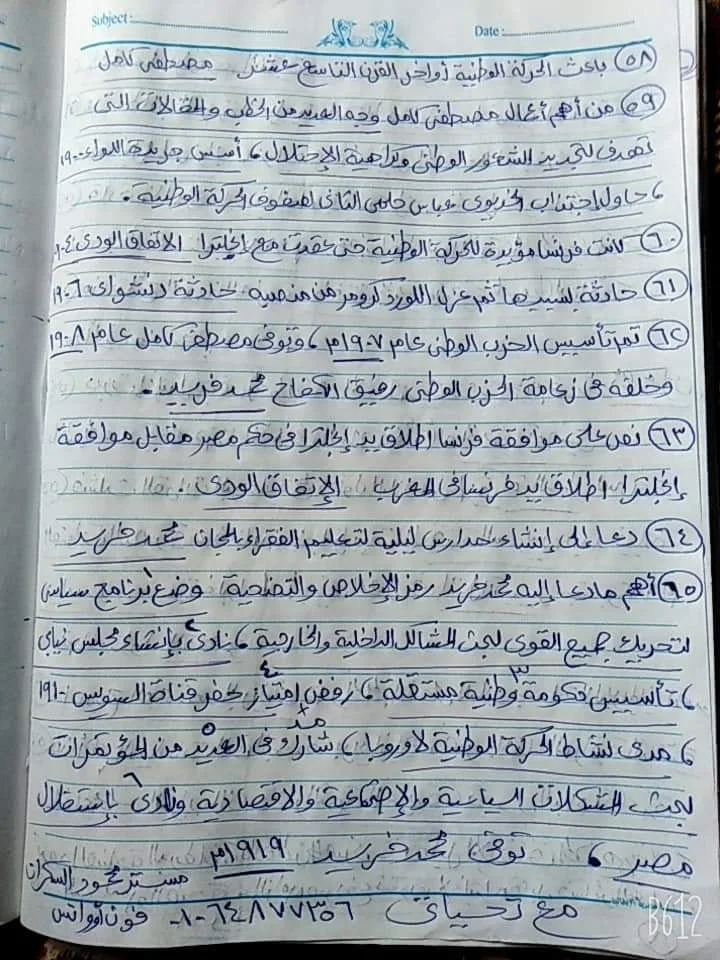 Subject: Date:
٥٨) باعث الحركة الوطنية أواخر القرن التاسع عشر مصطفى كامل
٥٩) من أهم أعمال مصطفى كامل وجه العديد من الخطب والمقالات التى
تهدف لتجديد الشعور الوطنى وكراهية الإحتلال ، أسس جريدة اللواء ١٩٠٠
، حاول اجتذاب الخديوى عباس حلمى الثانى لصفوف الحركة الوطنية .
٦٠) كانت فرنسا مؤيدة للحركة الوطنية حتى عقدت مع إنجلترا الاتفاق الودى ١٩٠٤
٦١) حادثة بسببها تم عزل اللورد كرومر من منصبه حادثة دنشواى ١٩٠٦
٦٢) تم تأسيس الحزب الوطنى عام ١٩٠٧م ، وتوفى مصطفى كامل عام ١٩٠٨
وخلفه فى زعامة الحزب الوطنى رفيق الكفاح محمد فريد .
٦٣) نص على موافقة فرنسا اطلاق يد إنجلترا فى حكم مصر مقابل موافقة
إنجلترا اطلاق يد فرنسا فى المغرب الإتفاق الودى .
٦٤) دعا إلى إنشاء مدارس ليلية لتعليم الفقراء بالمجان محمد فريد
٦٥) أهم ما دعا إليه محمد فريد رمز الإخلاص والتضحية : وضع برنامج سياسى
لتحريك جميع القوى لبحث المشاكل الداخلية والخارجية ، نادى بإنشاء مجلس نيابى
، تأسيس حكومة وطنية مستقلة ، رفض إمتياز حفر قناة السويس ١٩١٠
، مدى نشاط الحركة الوطنية لاوروبا ، شارك فى العديد من المؤتمرات
لبحث المشكلات السياسية والإجتماعية والاقتصادية ونادى بإستقلال
مصر ، توفى محمد فريد ١٩١٩م
مستر محمود السكران
مع تحياتى ٠١٠٦٤٨٧٧٣٥٦ فون أوواتس
B612